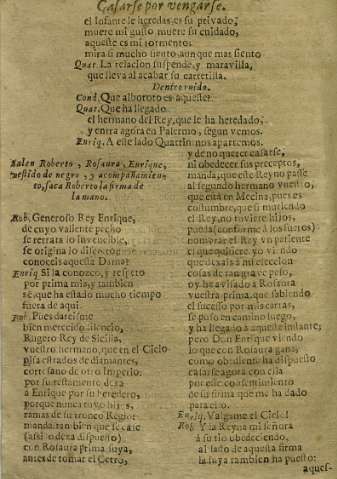 Casarse por vengarse.
el Infante le agradas, es su privado,
muere mi gusto, muere su cuidado,
aqueste es mi tormento:
mira si mucho siento, aun que mas siento
Quar. La relacion suspende, y maravilla,
que lleva al acabar su carretilla.
Dentro ruido.
Cond. Que alboroto es aqueste?
Quar. Que ha llegado
el hermano del Rey, que le ha heredado,
y entra agora en Palermo, segun vemos.
Enriq. A este lado Quatrin nos apartemos.
Salen Roberto, Rosaura, Enrique,
vestido de negro, y acompañamien-
to, saca Roberto la firma de
la mano.
Rob. Generoso Rey Enrique,
de cuyo valiente pecho
se retrata lo invencible,
se origina lo discreto:
conoceis aquesta Dama?
Enriq. Si la conozco, y respeto
por prima mia, y tambien
sè, que ha estado mucho tiempo
fuera de aqui.
Rob. Pues dareisme
bien merecido silencio,
Rugero Rey de Sicilia,
vuestro hermano, que en el Cielo
pisa estrados de diamantes,
cortesano de otro Imperio,
por su testamento dexa
a Enrique por su heredero,
porque nunca tuvo hijos,
ramas de su tronco Regio:
manda tambien que se case
(assi lo dexa dispuesto)
con Rosaura prima suya,
antes de tomar el Cetro,
y de no querer casarse,
ni obedecer sus preceptos,
manda, que este Reyno passe
al segundo hermano vuestro,
que està en Mecina, pues es
costumbre, que si muriendo
el Rey, no tuviere hijos,
pueda (conforme à los fueros)
nombrar el Rey un pariente
el que quisiere, yo viendo
que dexais à mi eleccion
cosas de tan grave peso,
oy he avisado a Rosaura
vuestra prima, que sabiendo
el successo por mis cartas,
se puso en camino luego,
y ha llegado à aqueste instante;
pero Don Enrique viendo
lo que con Rosaura gana,
como obediente ha dispuesto
casarse agora con ella
por este consentimiento
de su firma que me ha dado
para ello.
Enriq. Valgame el Cielo!
Rob. Y la Reyna mi señora
à su tio obedeciendo,
al lado de aquesta firma
la suya tambien ha puesto:
aques-